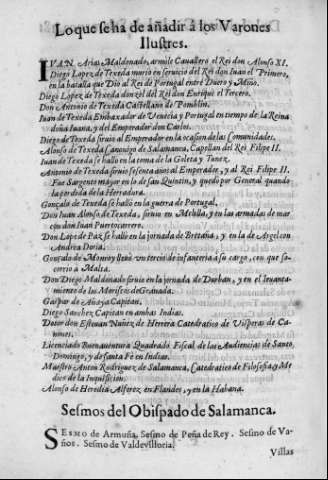 Lo que se ha de añadir à los Varones
Ilustres.
IVAN Arias Maldonado, armòle Cavallero el Rei don Alonso XI.
Diego Lopez de Texeda murió en servicio del Rei don Iuan el Primero,
en la batalla que diò al Rei de Portugal entre Duero y Miño.
Diego Lopez de Texeda del Rei don Enrique el Tercero.
Don Antonio de Texeda Castellano de Pomblin.
Iuan de Texeda Embaxador de Venecia y Portugal en tiempo de la Reina
doña Iuana, y del Emperador don Carlos.
Diego de Texeda sirvio al Emperador en la ocasion de las Comunidades.
Alonso de Texeda Canonigo de Salamanca, Capellan del Rei Filipe II.
Iuan de Texeda se hallò en la toma de la Goleta y Tunez.
Antonio de Texeda sirviò sesenta años al Emperador, y al Rei Filipe II.
Fue Sargento mayor en lo de san Quintin, y quedò por General quando
la perdida de la Herradura.
Gonzalo de Texeda se hallò en la guerra de Portugal.
Don Iuan Alonso de Texeda, sirvio en Melilla, y en las armadas de mar
con don Iuan Puertocarrero.
Don Lope de Paz se hallò en la jornada de Bretaña, y en la de Argel con
Andrea Doria.
Gonzalo de Monroy llevò un tercio de infanteria a su cargo, con que so-
corriò a Malta.
Don Diego Maldonado sirvio en la jornada de Durban, y en el levanta-
miento de los Moriscos de Granada.
Gaspar de Anaya Capitan.
Diego Sanchez Capitan en ambas Indias.
Dotor don Estevan Nuñez de Herrera Catedratico de Visperas de Ca-
nones.
Licenciado Buenaventura Quadrado Fiscal de las Audiencias de Santo
Domingo, y de santa Fè en Indias.
Maestro Anton Rodriguez de Salamanca, Catedratico de Filosofia, y Me-
dico de la Inquisicion.
Alonso de Heredia Alferez en Flandes, y en la Habana.
Sesmos del Obispado de Salamanca.
SESMO de Armuña. Sesmo de Peña de Rey. Sesmo de Va-
ños. Sesmo de Valdevilloria.
Villas